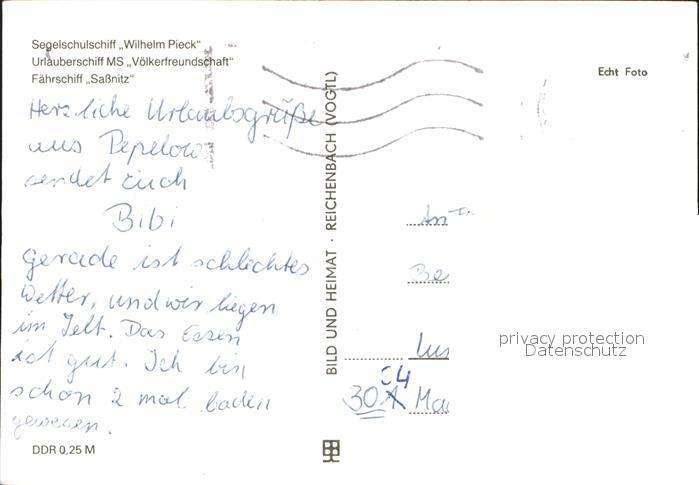 Segelschulschiff „Wilhelm Pieck“
Urlauberschiff MS „Völkerfreundschaft“
Fährschiff „Saßnitz“
Echt Foto
Herzliche Urlaubsgrüße
aus Pepelow
sendet Euch
Bibi
Gerade ist schlechtes
Wetter, und wir liegen
im Zelt. Das Essen
ist gut. Ich bin
schon 2 mal baden
gewesen.
DDR 0,25 M
BILD UND HEIMAT · REICHENBACH (VOGTL)
An
Be
30
privacy protection
Datenschutz